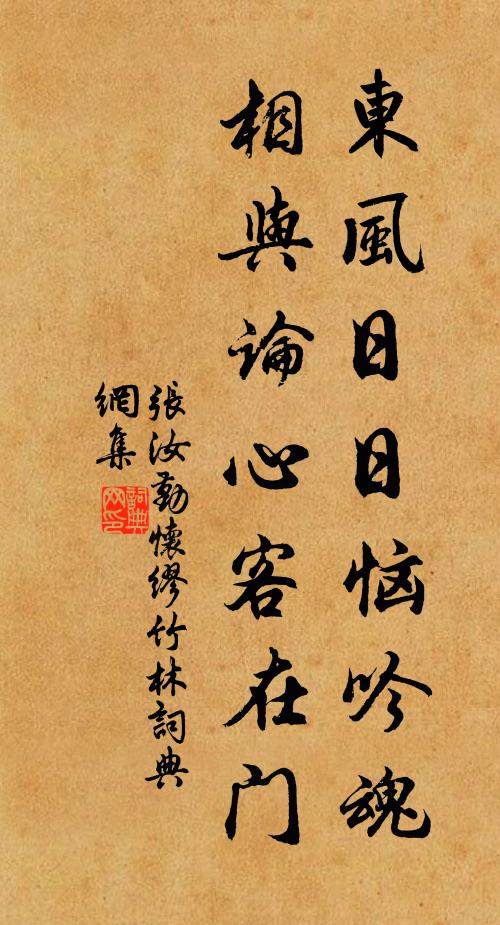 東風日日恼吟魂
相與論心客在门
張汝勤懷繆竹林詞典
網集
詞典網印